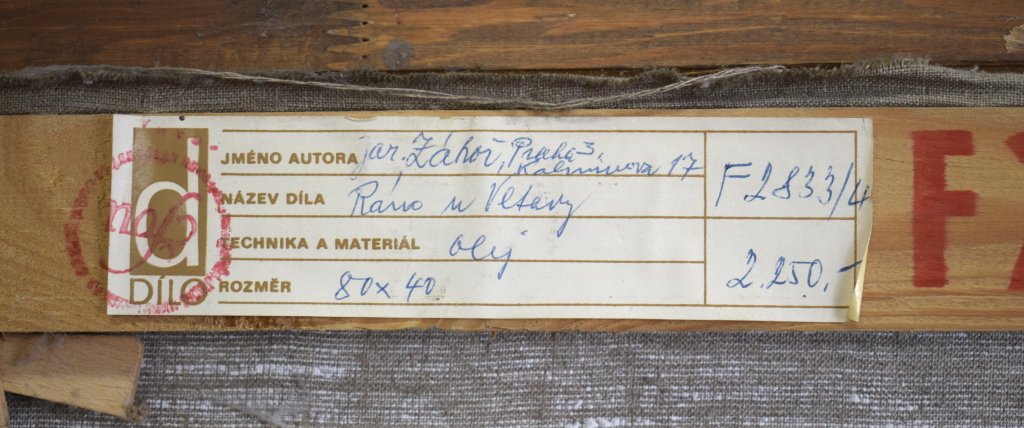 d
DÍLO
JMÉNO AUTORA jar. Záhoř, Praha 3,
Kalininova 17
NÁZEV DÍLA Ráno u Vltavy
TECHNIKA A MATERIÁL olej
ROZMĚR 80x40
F 2833/4
2.250,-
F